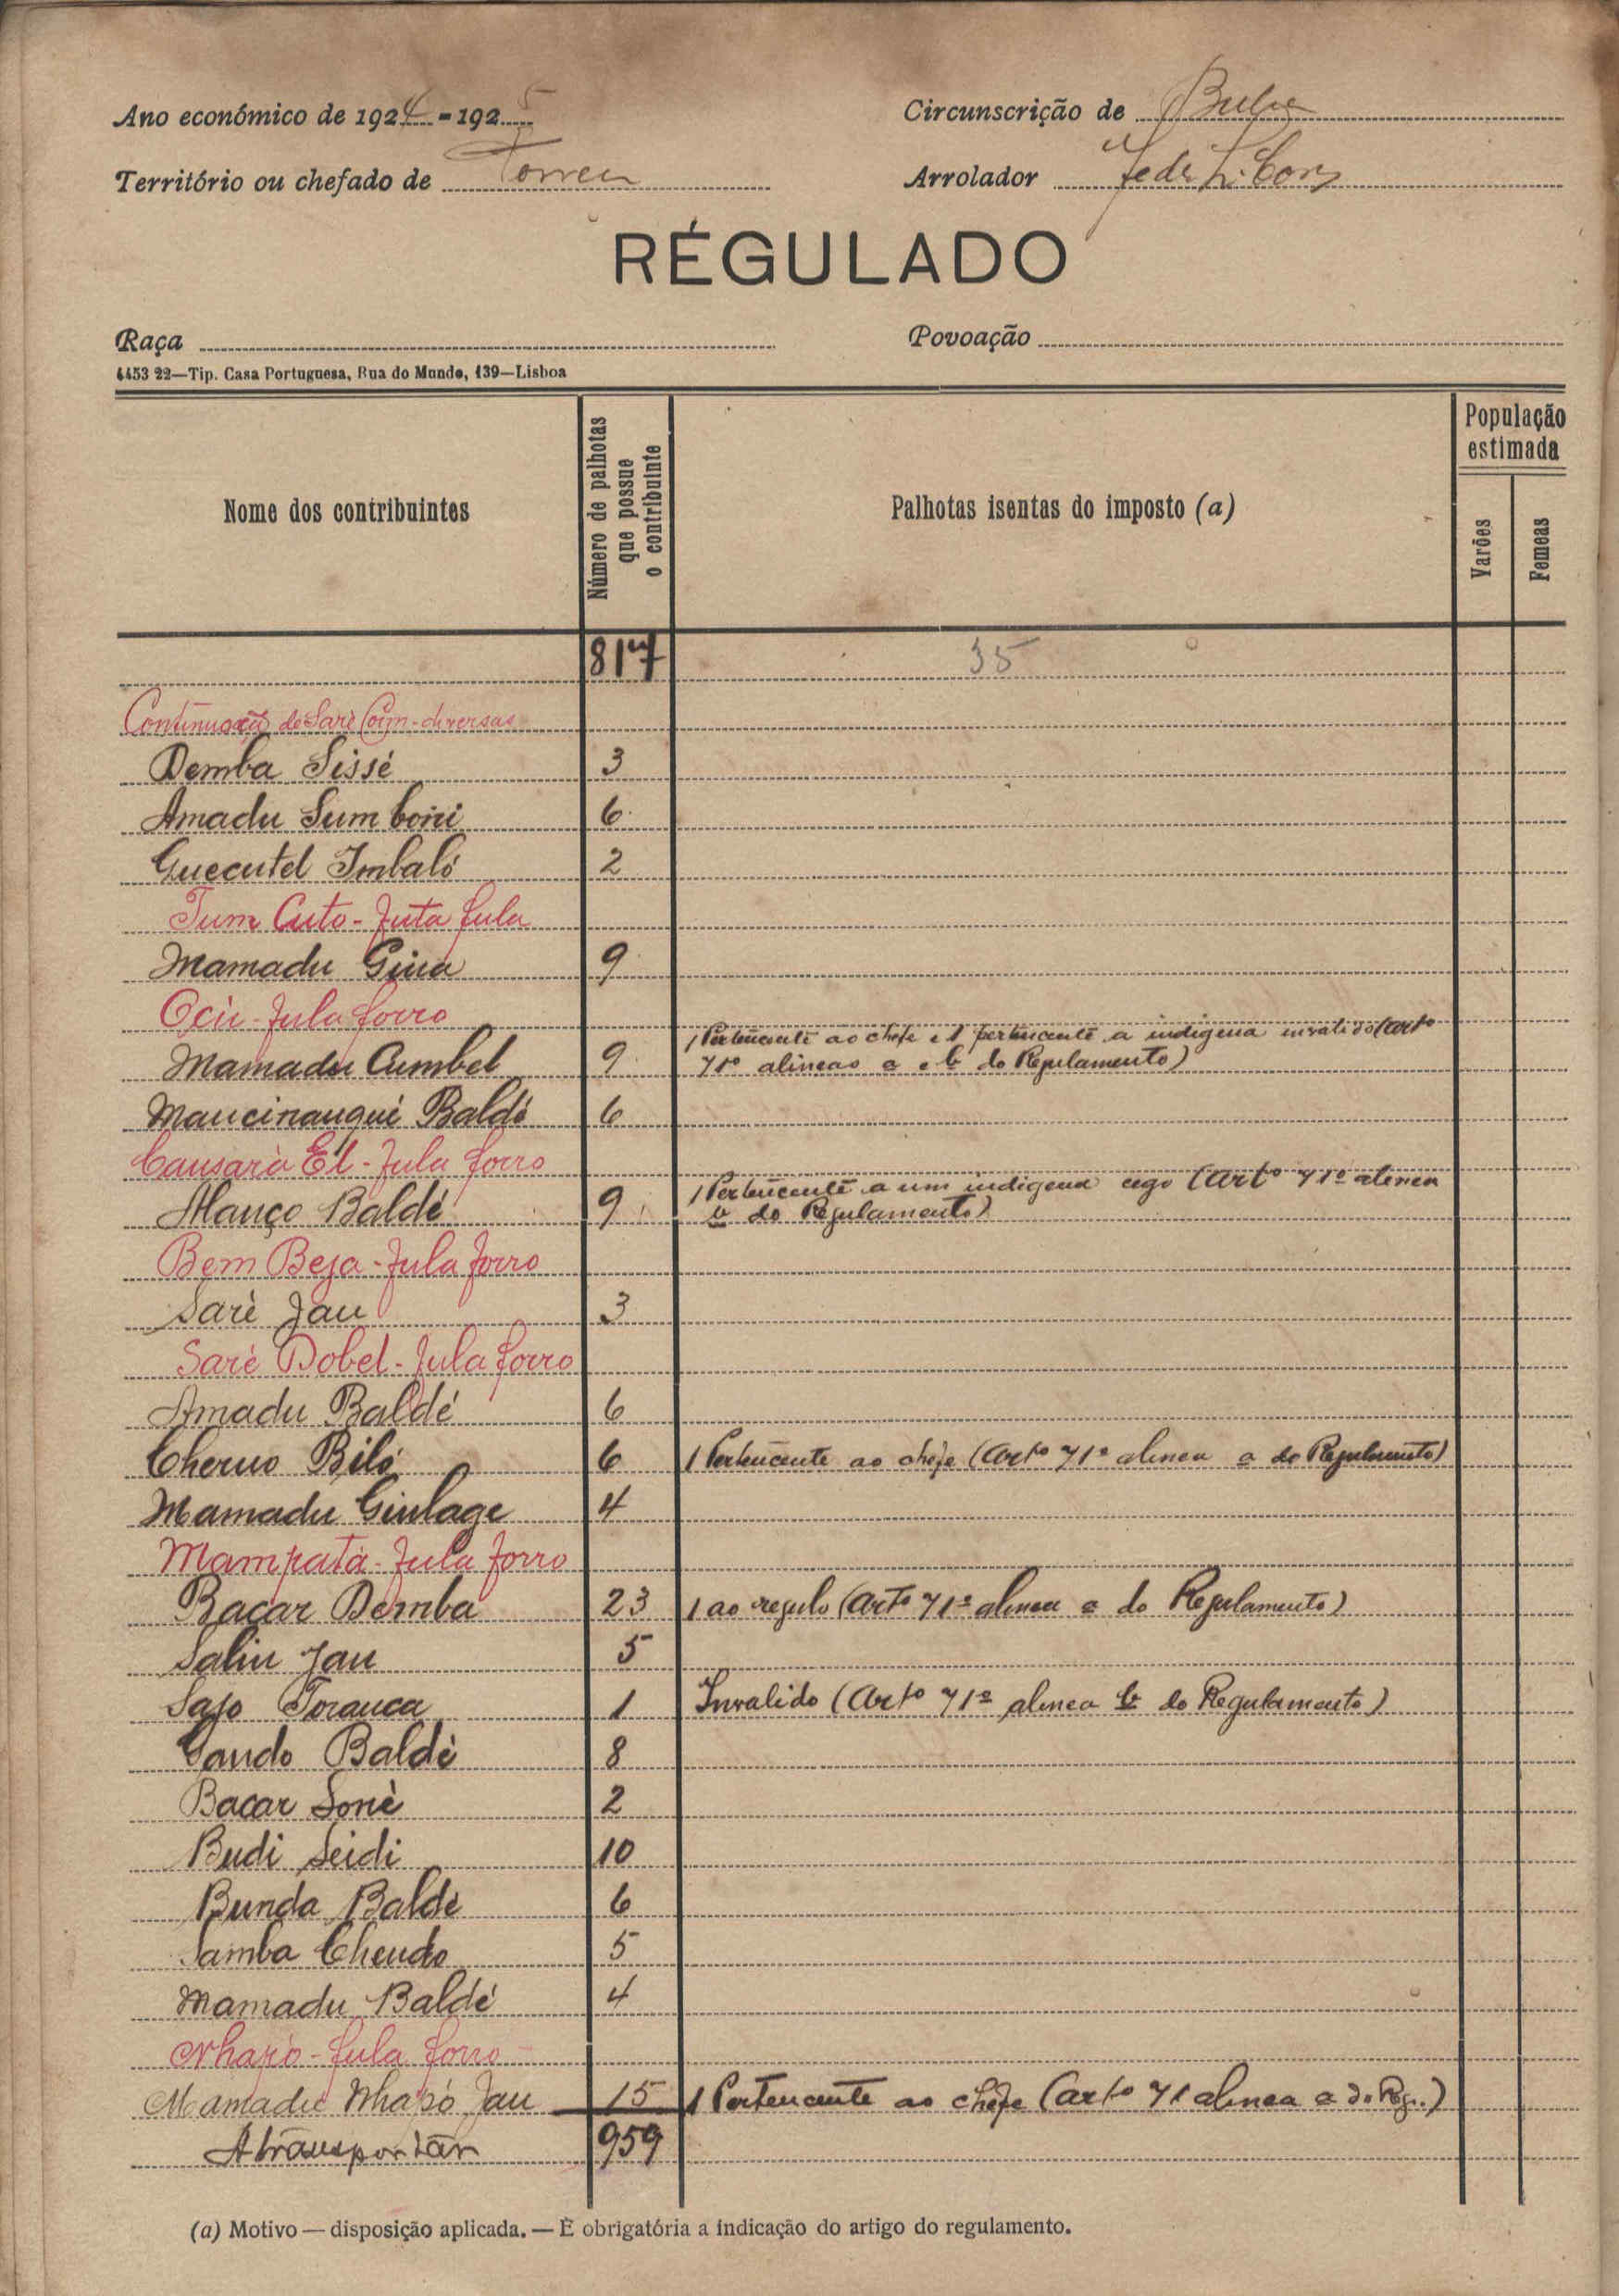 Ano económico de 1924-1925
Circunscrição de
Território ou chefado de
Arrolador
RÉGULADO
Raça
Povoação
4453 22—Tip. Casa Portuguesa, Rua do Mundo, 139—Lisboa
Nome dos contribuintes
Número de palhotas que possue o contribuinte
Palhotas isentas do imposto (a)
População estimada
Varões
Femeas
817 35
Continuoxã de Sarè diversas
Demba Sissé 3
Amadu Sum 6
Guecutel Imbaló 2
Tum Cuto - Futa fula
Mamadu 9
Ocù - Fula forro
1 Pertencente ao chefe e 1 pertencente a indigena invalido (arto
Mamadu Cumbel 9 71º alineas a e b do Regulamento)
Maucinaugué Baldé 6
Causarà El - Fula forro
1 Pertencente a um indigena cego (arto 71º alinea
Alanço Baldé 9 b do Regulamento)
Bem Beja - Fula forro
Sarè Jau 3
Sarè Dobel - Fula forro
Amadu Baldé 6
Cherno Biló 6 1 Pertencente ao chefe (arto 71º alinea a do Regulamento)
Mamadu Ginlage 4
Mampatà - Fula forro
Bacar Demba 23 1 ao regulo (arto 71º alinea a do Regulamento)
Saliu Jau 5
Sajo Torauca 1 Invalido (Arto 71º alinea b do Regulamento)
Sando Baldè 8
Bacar Sonè 2
Budi Seidi 10
Bunda Baldé 6
Samba Cheudo 5
Mamadu Baldé 4
Nhapò - fula forro
Mamadu Nhapó Jau 15 1 Pertencente ao chefe (arto 71 alinea a do Reg.)
A transportar 959
(a) Motivo — disposição aplicada. — È obrigatória a indicação do artigo do regulamento.